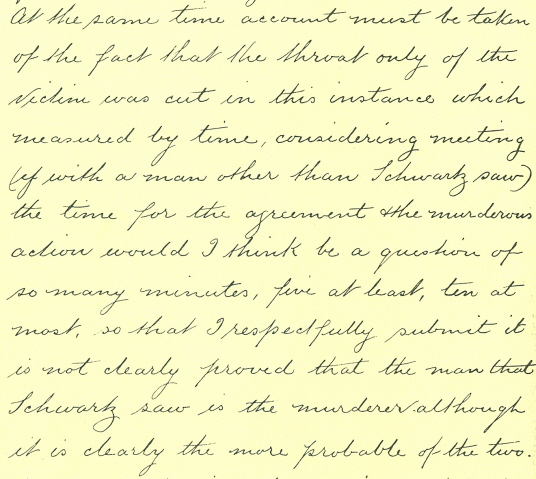 At the same time account must be taken
of the fact that the throat only of the
victim was cut in this instance which
measured by time, considering meeting
(if with a man other than Schwartz saw)
the time for the agreement & the murderous
action would I think be a question of
so many minutes, five at least, ten at
most, so that I respectfully submit it
is not clearly proved that the man that
Schwartz saw is the murderer although
it is clearly the more probable of the two.